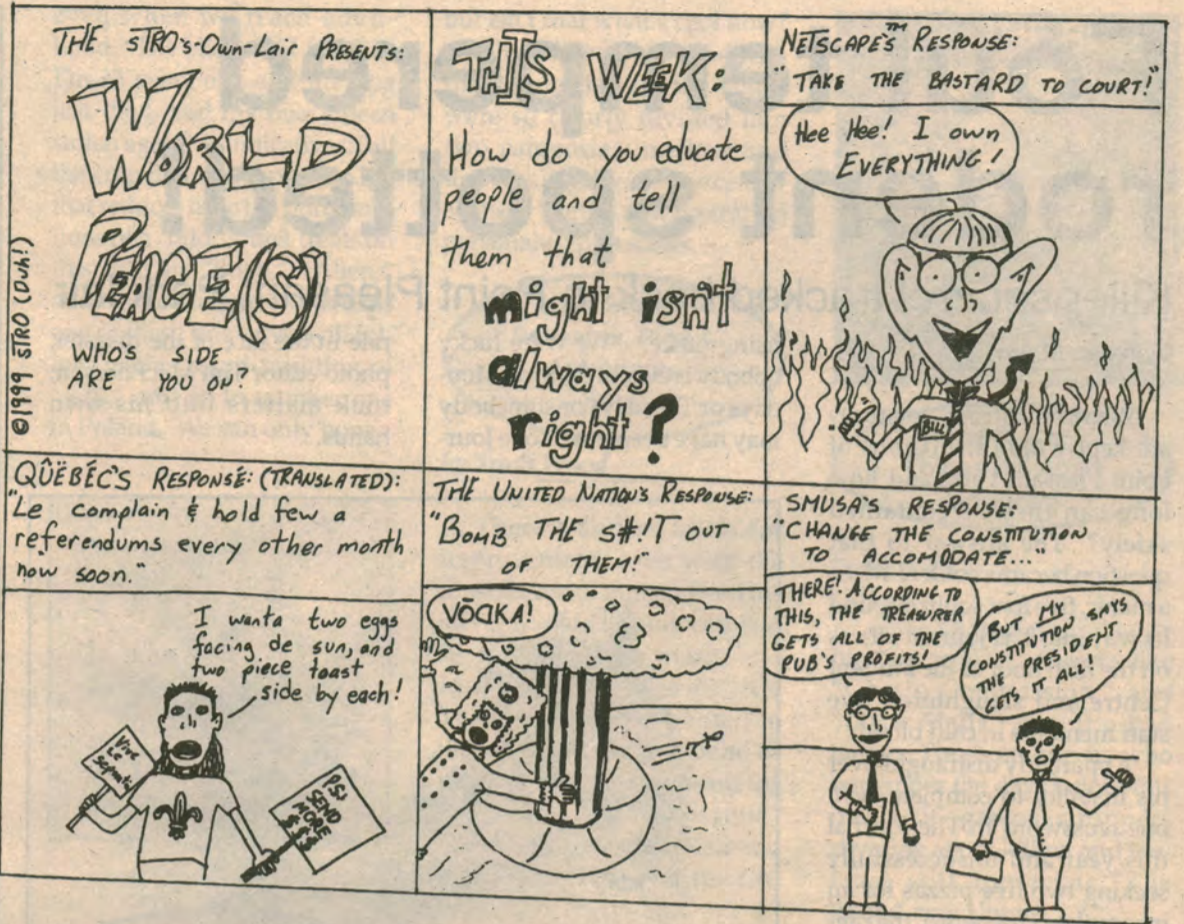 THE STRO's-Own-Lair PRESENTS:
WORLD
PEACE(S)
WHO'S SIDE
ARE YOU ON?
©1999 STRO (Duh!)
THIS WEEK:
How do you educate
people and tell
them that
might isn't
always
right?
NETSCAPE'S™ RESPONSE:
"TAKE THE BASTARD TO COURT!"
Hee Hee! I own
EVERYTHING!
BILL
QÛËBÉC'S RESPONSE: (TRANSLATED):
"Le complain & hold few a
referendums every other month
now soon."
I wanta two eggs
facing de sun, and
two piece toast
side by each!
Vive
Le
PS:
SEND
MORE
$ $ $
THE UNITED NATION'S RESPONSE:
"BOMB THE S#!T OUT
OF THEM!"
VŌDKA!
SMUSA'S RESPONSE:
"CHANGE THE CONSTITUTION
TO ACCOMODATE..."
THERE! ACCORDING TO
THIS, THE TREASURER
GETS ALL OF THE
PUB'S PROFITS!
BUT MY
CONSTITUTION SAYS
THE PRESIDENT
GETS IT ALL!